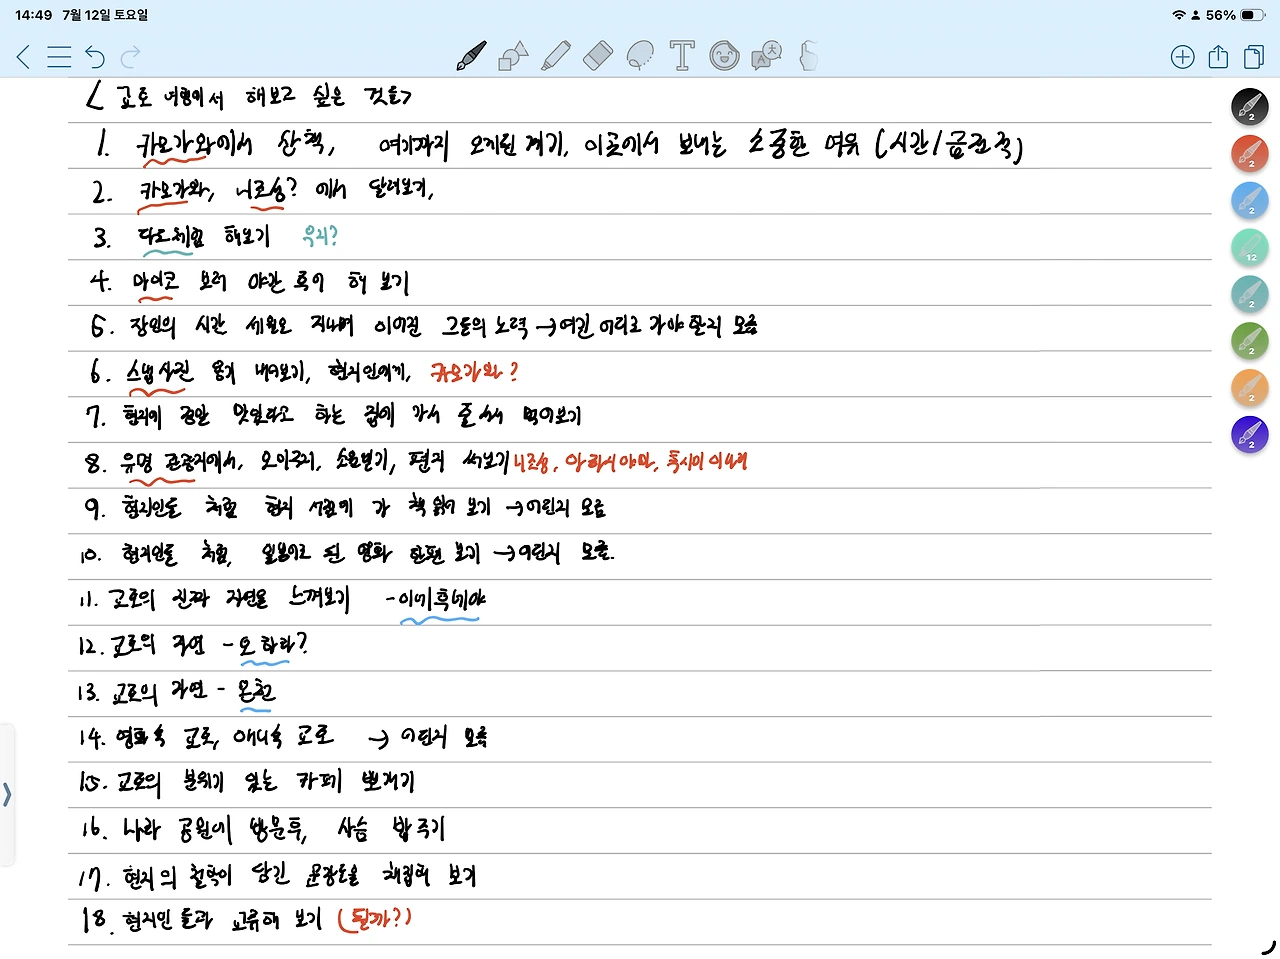 14:49 7월 12일 토요일 56%
<교토 여행에서 해보고 싶은 것들>
1. 카모가와에서 산책, 여기까지 오게된 계기, 이곳에서 보내는 소중한 여유 (시간/금전적)
2. 카모가와, 니조성? 에서 달려보기,
3. 다도체험 해보기 우지?
4. 마이코 보러 야간 투어 해 보기
5. 장인의 시간 세월을 지나며 이어진 그들의 노력 →여긴 어디로 가야 할지 모름
6. 스냅사진 용기 내어보기, 현지인에게, 카모가와?
7. 현지의 정말 맛있다고 하는 집에 가서 줄 서서 먹어보기
8. 유명 관광지에서, 오미쿠지, 소원빌기, 편지 써보기 니조성, 아라시야마, 후시미 이나리
9. 현지인들 처럼 현지 서점에 가 책 읽어 보기 →어딘지 모름
10. 현지인들 처럼, 일본어로 된 영화 한편 보기 →어딘지 모름.
11. 교토의 진짜 자연을 느껴보기 -이네후나야
12. 교토의 자연 - 오하라?
13. 교토의 자연 - 온천
14. 영화속 교토, 애니속 교토 → 어딘지 모름
15. 교토의 분위기 있는 카페 뽀개기
16. 나라 공원에 방문후, 사슴 밥 주기
17. 현지의 철학이 담긴 문장들을 채집해 보기
18. 현지인 들과 교류해 보기 (될까?)